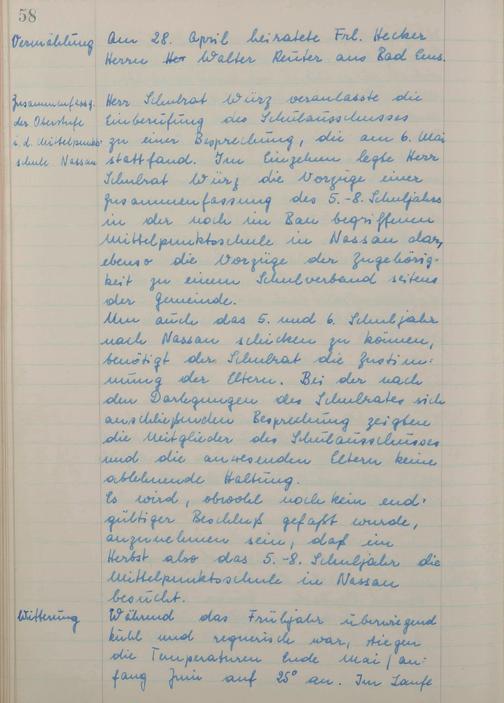 58
Vermählung
Am 28. April heiratete Frl. Hecker
Herrn Walter Reuter aus Bad Ems.
Zusammenfassg.
der Oberstufe
i. d. Mittelpunkt-
schule Nassau
Herr Schulrat Würz veranlasste die
Einberufung des Schulausschusses
zu einer Besprechung, die am 6. Mai
stattfand. Im Einzelnen legte Herr
Schulrat Würz die Vorzüge einer
Zusammenfassung des 5.-8. Schuljahrs
in der noch im Bau begriffenen
Mittelpunktschule in Nassau dar,
ebenso die Vorzüge der Zugehörig-
keit zu einem Schulverband seitens
der Gemeinde.
Um auch das 5. und 6. Schuljahr
nach Nassau schicken zu können,
benötigt der Schulrat die Zustim-
mung der Eltern. Bei der nach
den Darlegungen des Schulrates sich
anschließenden Besprechung zeigten
die Mitglieder des Schulausschusses
und die anwesenden Eltern keine
ablehnende Haltung.
Es wird, obwohl noch kein end-
gültiger Beschluß gefaßt wurde,
anzunehmen sein, daß im
Herbst also das 5.-8. Schuljahr die
Mittelpunktschule in Nassau
besucht.
Witterung
Während das Frühjahr überwiegend
kühl und regnerisch war, stiegen
die Temperaturen Ende Mai / an-
fang Juni auf 25° an. Im Laufe